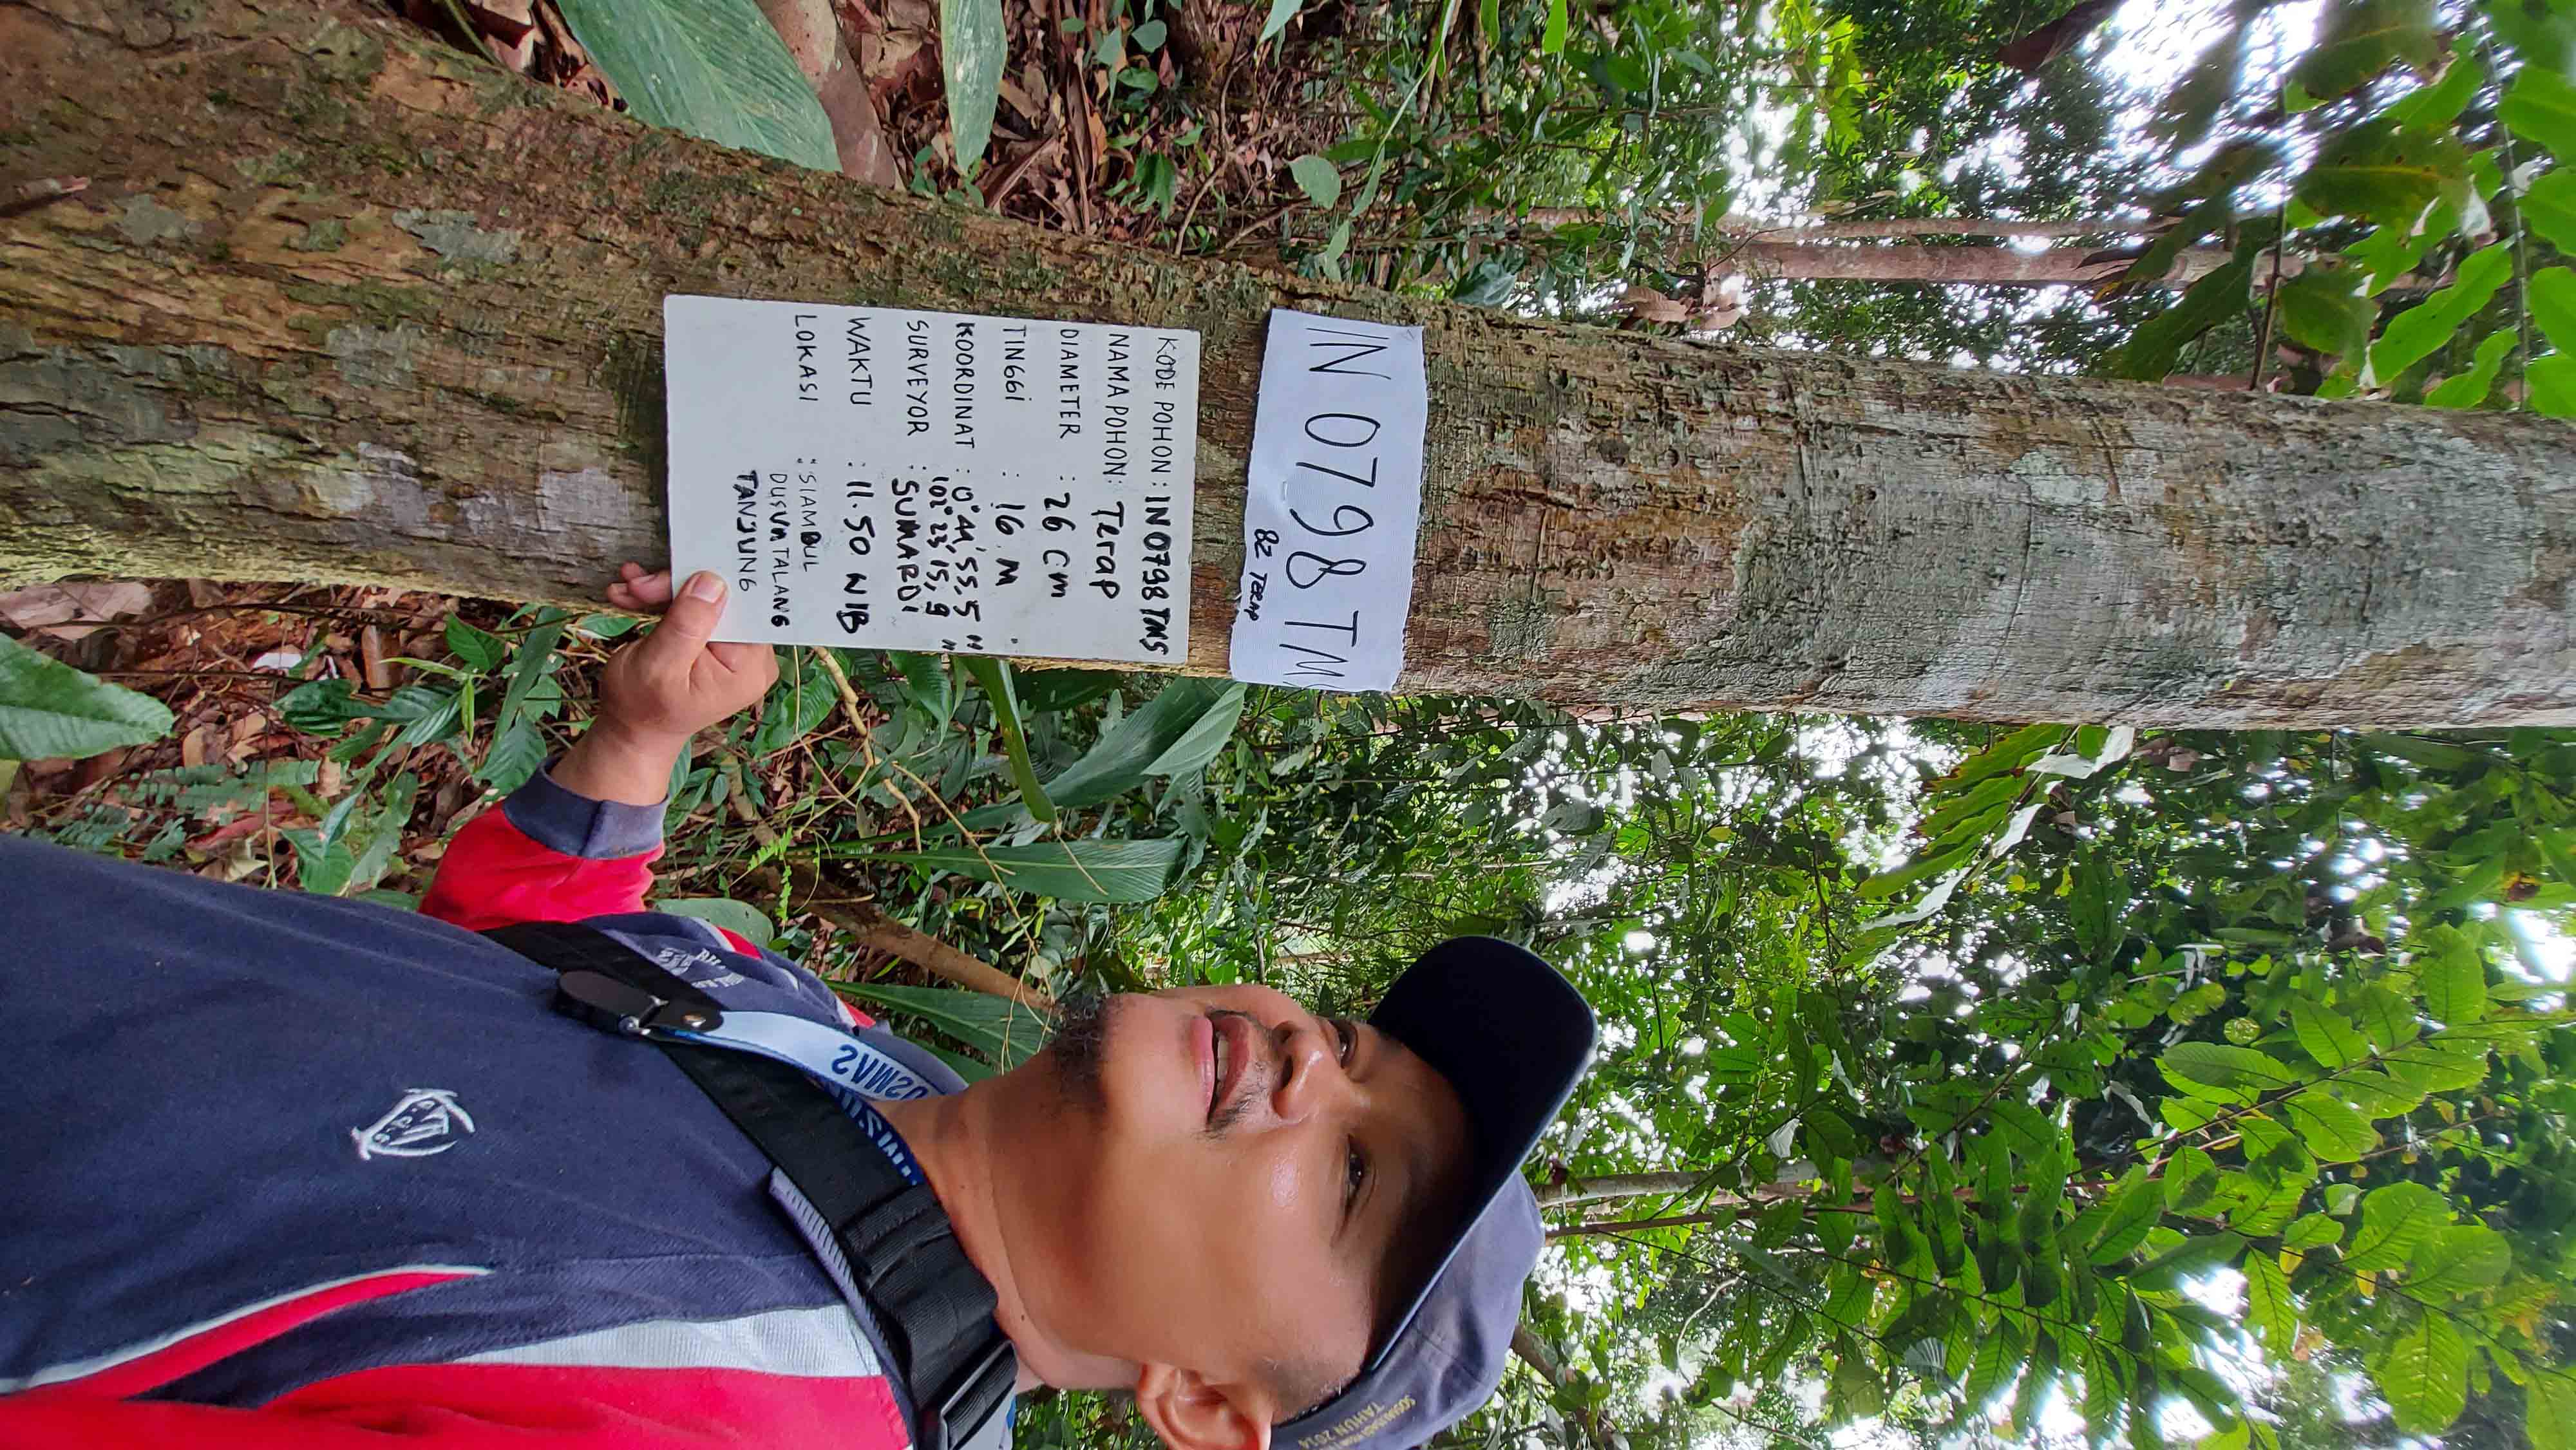 IN 0798 TMS
82 TERAP
KODE POHON : IN0798 TMS
NAMA POHON : Terap
DIAMETER : 26 cm
TINGGI : 16 M
KOORDINAT : 0° 44' 55,5 "
102° 23' 15, 9 "
SURVEYOR : SUMARDi
WAKTU : 11.50 WIB
LOKASI : SIAMBUL
DUSUN TALANG
TANJUNG
TAHUN 2014